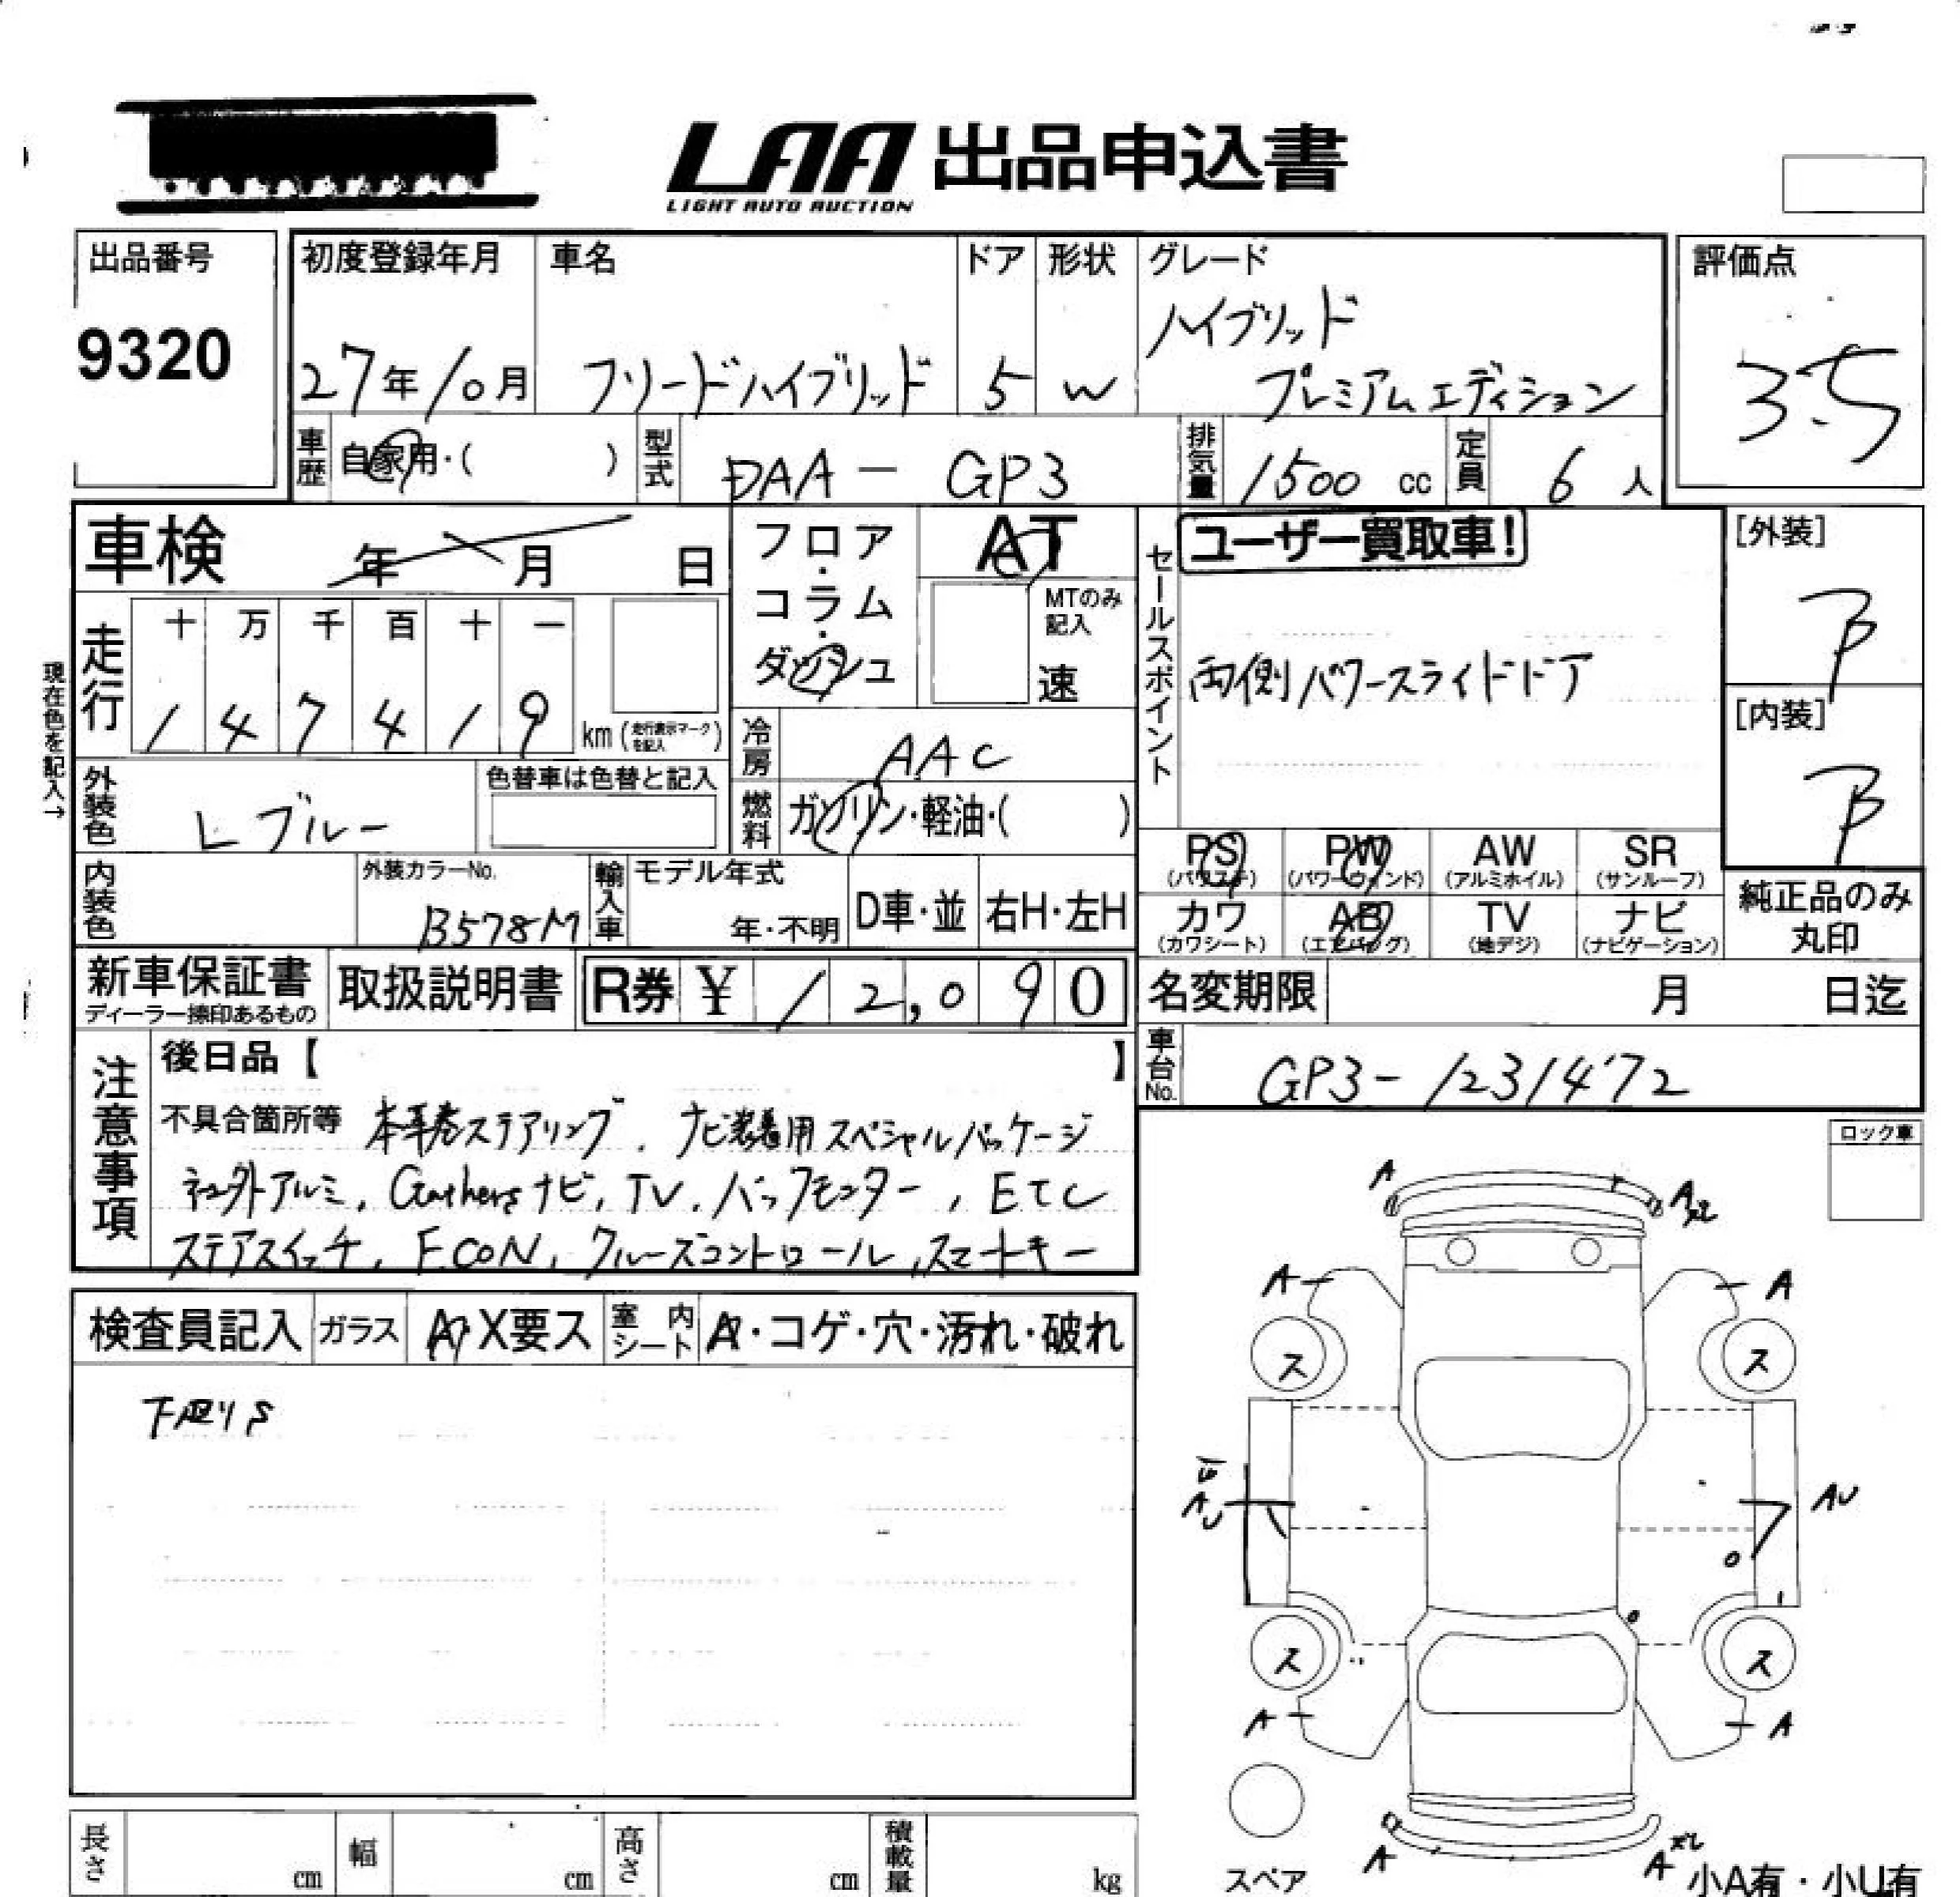 LAA 出品申込書
LIGHT AUTO AUCTION
出品番号
9320
初度登録年月
27年10月
車名
フリードハイブリッド
ドア
5
形状
W
グレード
ハイブリッド
プレミアムエディション
評価点
3.5
車歴 自家用・( )
型式 DAA-GP3
排気量 1500 cc
定員 6 人
車検 年 月 日
フロア・コラム・ダッシュ
AT
MTのみ記入
速
セールスポイント
ユーザー買取車!
両側パワースライドドア
[外装]
B
[内装]
B
現在色を記入→
走行 十 万 千 百 十 一
1 4 7 4 1 9 km (走行表示マークを記入)
冷房 AAC
燃料 ガソリン・軽油・( )
外装色 Lブルー
色替車は色替と記入
内装色
外装カラーNo.
B578M
輸入車 モデル年式
年・不明
D車・並
右H・左H
PS (パワステ)
PW (パワーウィンド)
AW (アルミホイル)
SR (サンルーフ)
カワ (カワシート)
AB (エアバッグ)
TV (地デジ)
ナビ (ナビゲーション)
純正品のみ丸印
新車保証書
ディーラー捺印あるもの
取扱説明書
R券 ¥ 12,090
名変期限 月 日迄
車台No. GP3-1231472
注意事項
後日品【 】
不具合箇所等 本革巻ステアリング、ナビ装着用スペシャルパッケージ
社外アルミ、Gathersナビ、TV、バックモニター、ETC
ステアスイッチ、F.CON、クルーズコントロール、スマートキー
ロック車
検査員記入
ガラス A・X要ス
室内シート A・コゲ・穴・汚れ・破れ
下廻りS
A A
A A
ス ス
AU AU
ス ス
A A
A A
スペア
小A有・小U有
長さ cm
幅 cm
高さ cm
積載量 kg